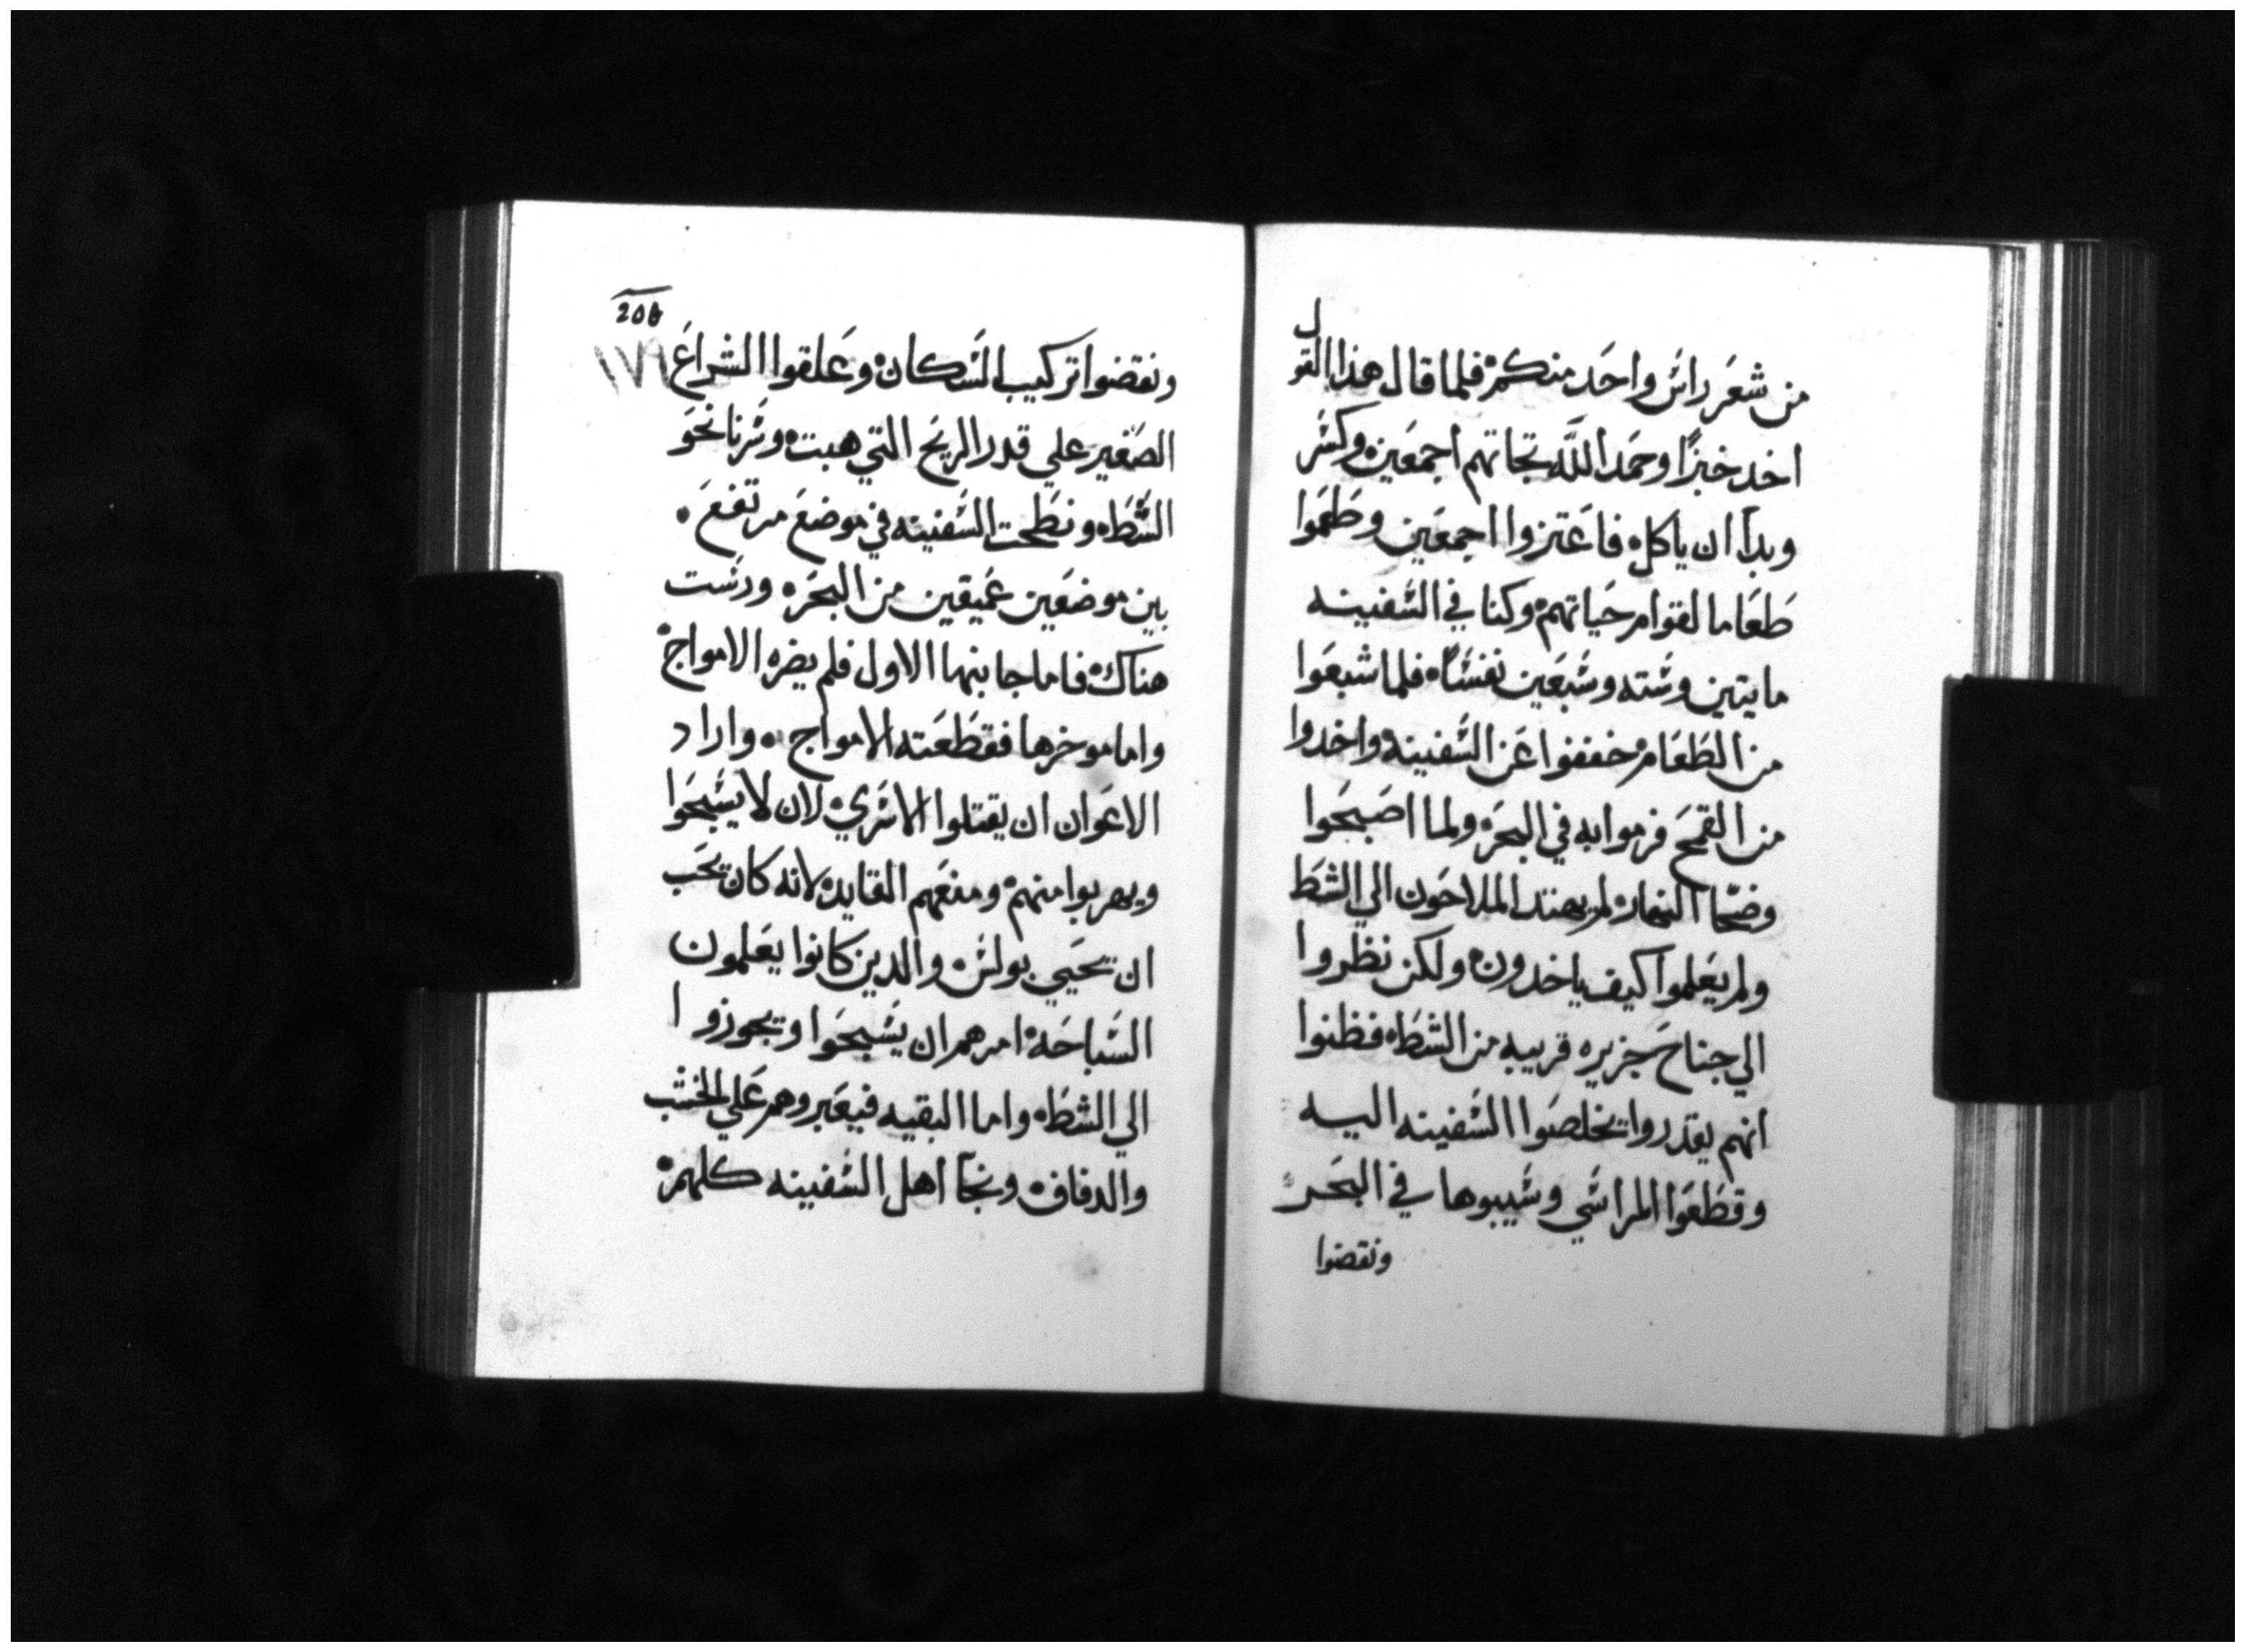 من شعر راس واحد منكم فلما قال هذا القول
اخد خبزًا وحمد اللّه تجاتهم اجمعين وكسر
وبدا ان ياكل فاعتزوا اجمعين وطعموا
طعاما لقوام حياتهم وكنا في السفينه
مايتين وسته وسبعين نفسًا فلما شبعوا
من الطعام خففوا عن السفينه واخدوا
من القمح فرموا به في البحر ولما اصبحوا
وضحا النهار لم يهتد الملاحون الي الشط
ولم يعلموا كيف ياخدون ولكن نظروا
الي جناح جزيره قريبه من الشط فظنوا
انهم يقدروا يخلصوا السفينه اليه
وقطعوا المراسي وسيبوها في البحر
ونقضوا
206
١٧٩
ونقضوا تركيب السكان وعلقوا الشراع
الصغير علي قدر الريح التي هبت وسرنا نحو
الشط ونطحت السفينه في موضع مرتفع
بين موضعين عميقين من البحر ورست
هناك فاما جانبها الاول فلم يضره الامواج
واما موخرها فقطعته الامواج واراد
الاعوان ان يقتلوا الاسري لان لا يسبحوا
ويهربوا منهم ومنعهم القايد لانه كان يحب
ان يحيي بولس والدين كانوا يعلمون
السباحه امرهم ان يسبحوا ويجوزوا
الي الشط واما البقيه فيعبروهم علي الخشب
والدفاف ونجا اهل السفينه كلهم